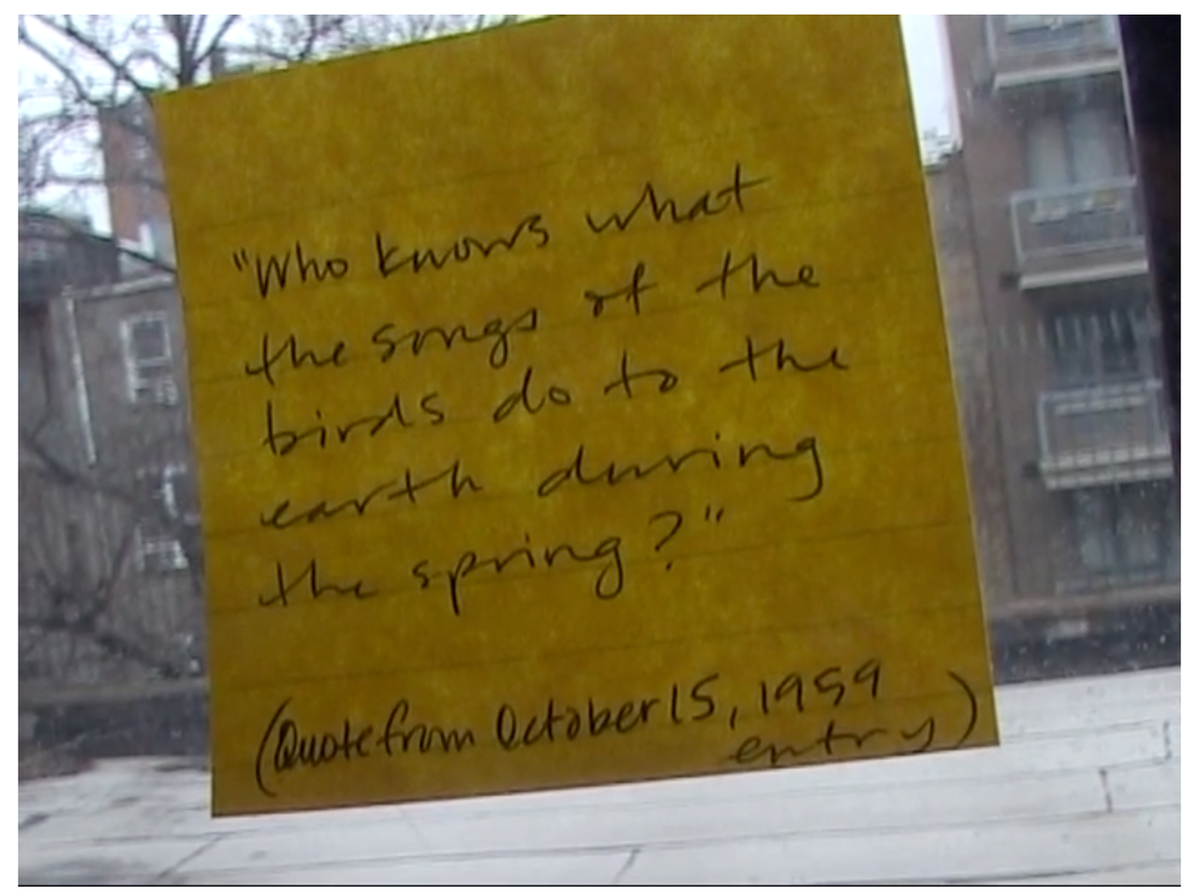 "Who knows what
the songs of the
birds do to the
earth during
the spring?"
(Quote from October 15, 1959
entry)